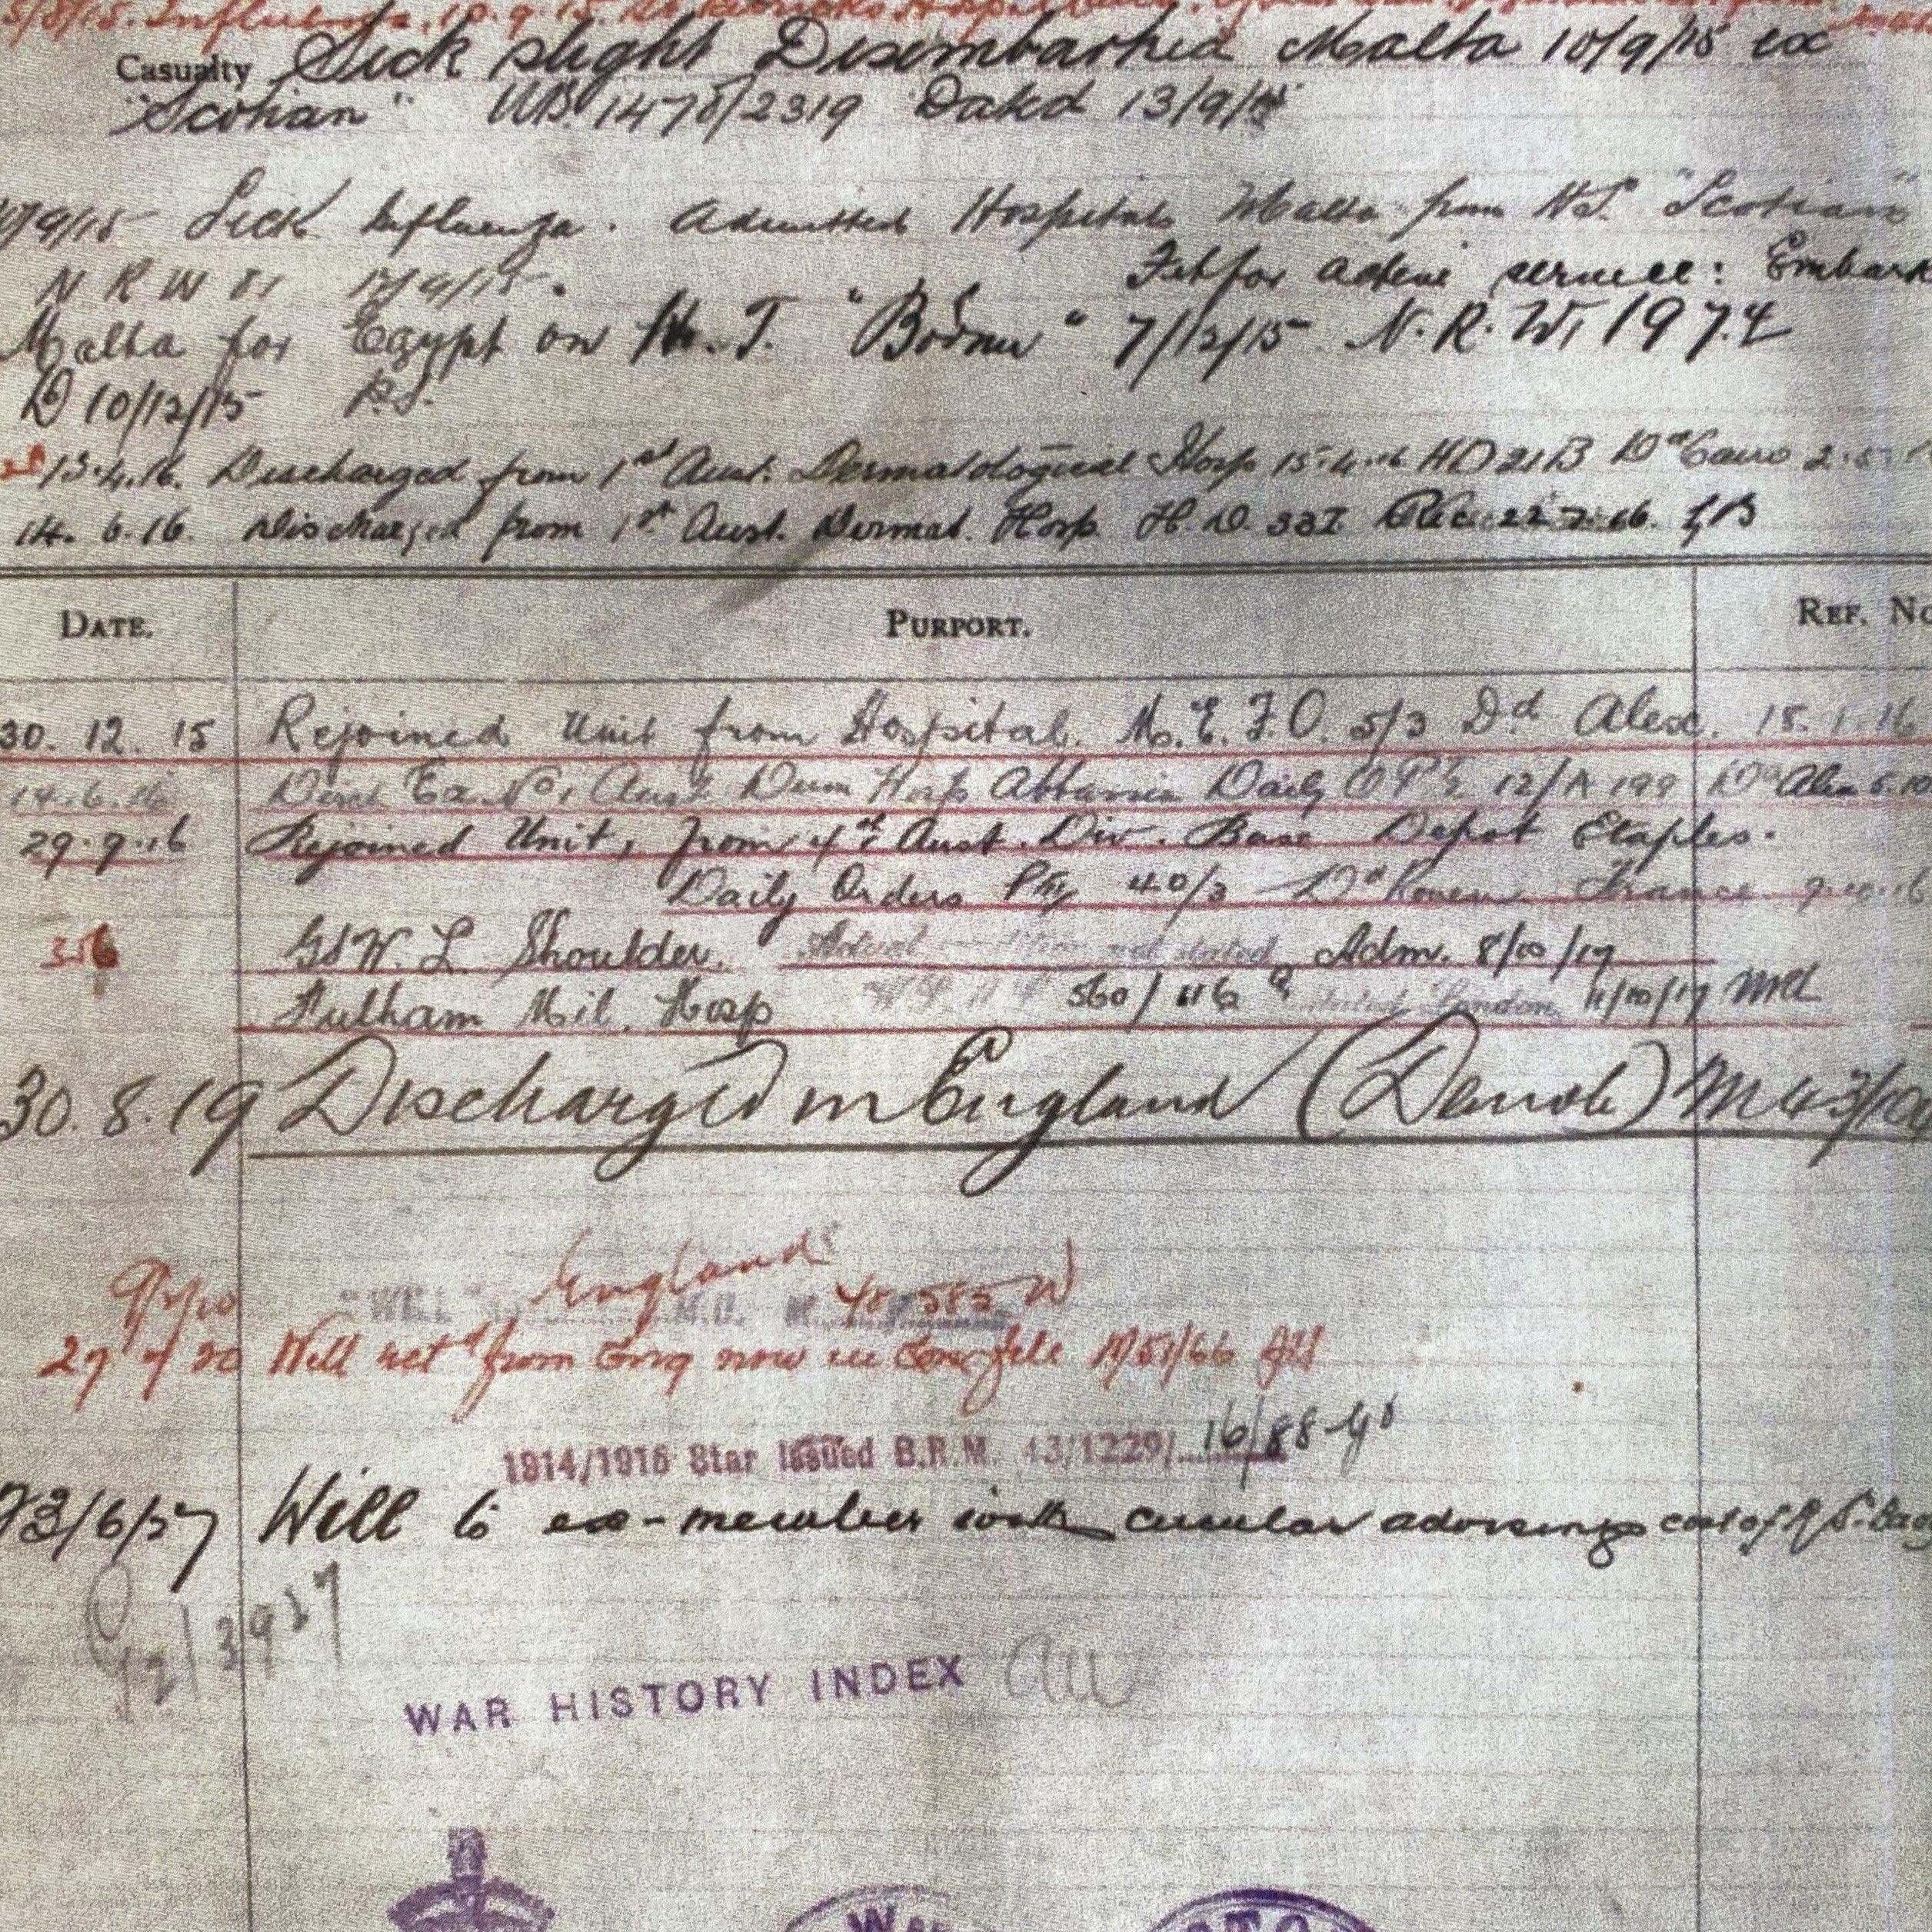 5/8/15. Influenza. 10.9.15.
Casualty Sick slight Disembarked Malta 10/9/15 ex
"Scotian" Dated 13/9/15
Sick Influenza. Admitted Hospital Malta from H.S. "Scotian"
N R W 81 Fit for active service: Embark
Malta for Egypt on H.T. "Bornu" 7/12/15. N.R.W. 1974
D 10/12/15
15.4.16. Discharged from 1st Aust. Dermatological Hosp 15.4.16 HD 21B Dd Cairo
14.6.16. Discharged from 1st Aust. Dermat. Hosp H.D. 337 Rec 22.7.16.
DATE. PURPORT. REF. NO
30.12.15 Rejoined Unit from Hospital. M.E.F.O. 5/3 Dd Alex. 15.1.16
14.6.16 Disch Ex No 1 Aust Derm Hosp Abbassia Daily 12/A 199 Dd Alex
29.9.16 Rejoined Unit, from 4th Aust. Div. Base Depot Etaples.
Daily Orders 40/3 Dd Rouen France 9.10.16
356 GSW. L Shoulder. Adm. 8/10/17
Fulham Mil. Hosp London 11/10/17
30.8.19 Discharged in England (Demob)
England
"WILL"
Will ret'd from now in file
1914/1915 Star Issued B.R.M. 43/1229/ 16/88
Will to ex-member with circular advising
WAR HISTORY INDEX